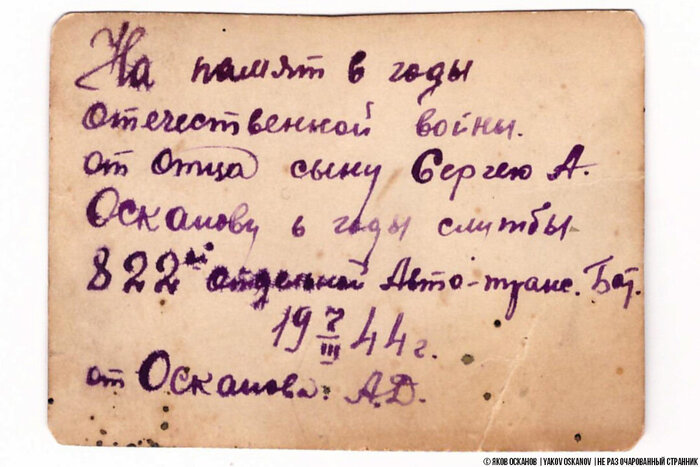 На памят в годы
отечественной войны.
от отца сыну Сергею А.
Осканову в годы службы
822ой отдельной Авто-транс. Бат.
19 7/III 44 г.
от Осканова. А.Д.
© ЯКОВ ОСКАНОВ | YAKOV OSKANOV | НЕ РАЗ ОЧАРОВАННЫЙ СТРАННИК